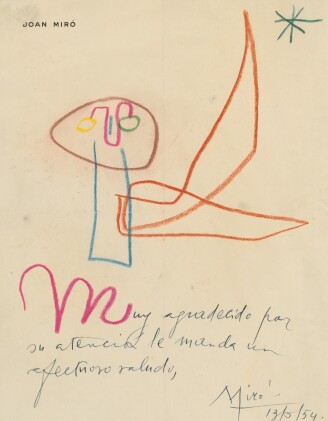 JOAN MIRÓ
Muy agradecido por
su atención le manda un
afectuoso saludo,
Miró.
13/5/54.